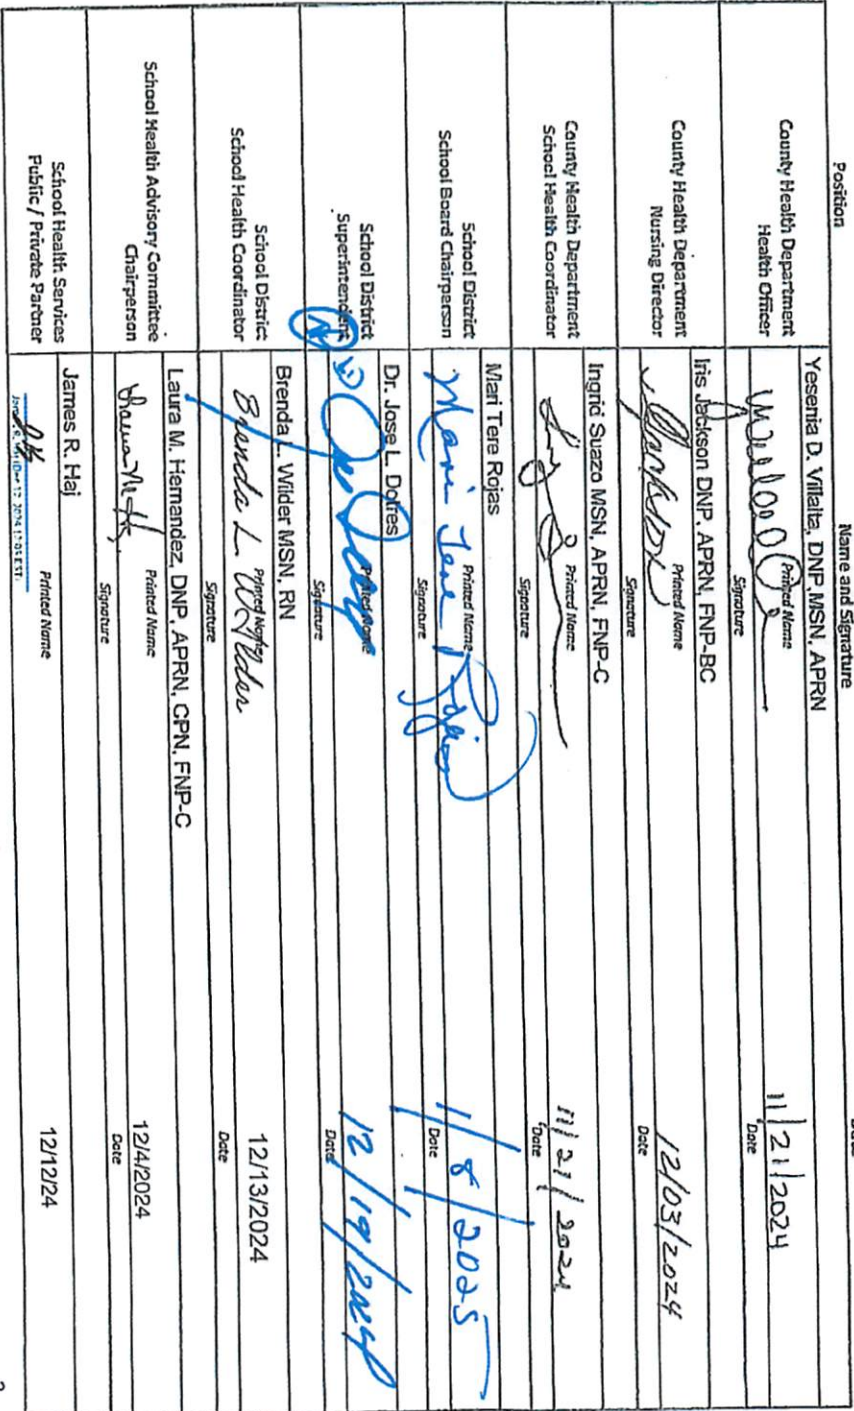 Position Name and Signature Date
County Health Department
Health Officer
Yesenia D. Villalta, DNP,MSN, APRN
Printed Name
11/21/2024
Signature
Date
County Health Department
Nursing Director
Iris Jackson DNP, APRN, FNP-BC
Printed Name
Jackson
12/03/2024
Signature
Date
County Health Department
School Health Coordinator
Ingrid Suazo MSN, APRN, FNP-C
Printed Name
11/21/2024
Signature
Date
School District
School Board Chairperson
Mari Tere Rojas
Printed Name
Mari Tere Rojas
1/8/2025
Signature
Date
School District
Superintendent
Dr. Jose L. Dotres
Printed Name
12/19/2024
Signature
Date
School District
School Health Coordinator
Brenda L. Wilder MSN, RN
Printed Name
Brenda L. Wilder
12/13/2024
Signature
Date
School Health Advisory Committee
Chairperson
Laura M. Hernandez, DNP, APRN, CPN, FNP-C
Printed Name
12/4/2024
Signature
Date
School Health Services
Public / Private Partner
James R. Haj
Printed Name
12/12/24